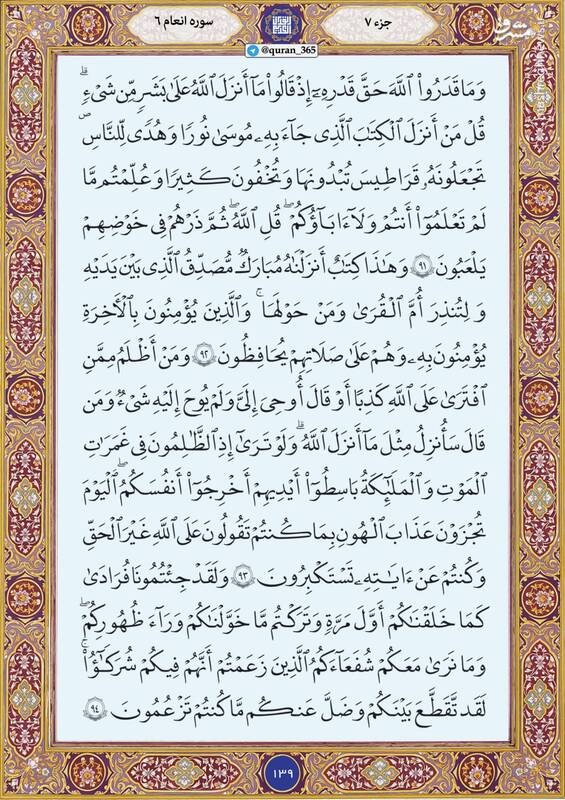 جزء ۷
سوره انعام ۶
@quran_365
وَمَا قَدَرُوا۟ ٱللَّهَ حَقَّ قَدْرِهِۦٓ إِذْ قَالُوا۟ مَآ أَنزَلَ ٱللَّهُ عَلَىٰ بَشَرٍ مِّن شَىْءٍ ۗ
قُلْ مَنْ أَنزَلَ ٱلْكِتَٰبَ ٱلَّذِى جَآءَ بِهِۦ مُوسَىٰ نُورًا وَهُدًى لِّلنَّاسِ ۖ
تَجْعَلُونَهُۥ قَرَاطِيسَ تُبْدُونَهَا وَتُخْفُونَ كَثِيرًا وَعُلِّمْتُم مَّا
لَمْ تَعْلَمُوٓا۟ أَنتُمْ وَلَآ ءَابَآؤُكُمْ ۖ قُلِ ٱللَّهُ ۖ ثُمَّ ذَرْهُمْ فِى خَوْضِهِمْ
يَلْعَبُونَ ۹۱ وَهَٰذَا كِتَٰبٌ أَنزَلْنَٰهُ مُبَارَكٌ مُّصَدِّقُ ٱلَّذِى بَيْنَ يَدَيْهِ
وَلِتُنذِرَ أُمَّ ٱلْقُرَىٰ وَمَنْ حَوْلَهَا ۚ وَٱلَّذِينَ يُؤْمِنُونَ بِٱلْـَٔاخِرَةِ
يُؤْمِنُونَ بِهِۦ وَهُمْ عَلَىٰ صَلَاتِهِمْ يُحَافِظُونَ ۹۲ وَمَنْ أَظْلَمُ مِمَّنِ
ٱفْتَرَىٰ عَلَى ٱللَّهِ كَذِبًا أَوْ قَالَ أُوحِىَ إِلَىَّ وَلَمْ يُوحَ إِلَيْهِ شَىْءٌ وَمَن
قَالَ سَأُنزِلُ مِثْلَ مَآ أَنزَلَ ٱللَّهُ ۗ وَلَوْ تَرَىٰٓ إِذِ ٱلظَّٰلِمُونَ فِى غَمَرَٰتِ
ٱلْمَوْتِ وَٱلْمَلَٰٓئِكَةُ بَاسِطُوٓا۟ أَيْدِيهِمْ أَخْرِجُوٓا۟ أَنفُسَكُمُ ۖ ٱلْيَوْمَ
تُجْزَوْنَ عَذَابَ ٱلْهُونِ بِمَا كُنتُمْ تَقُولُونَ عَلَى ٱللَّهِ غَيْرَ ٱلْحَقِّ
وَكُنتُمْ عَنْ ءَايَٰتِهِۦ تَسْتَكْبِرُونَ ۹۳ وَلَقَدْ جِئْتُمُونَا فُرَٰدَىٰ
كَمَا خَلَقْنَٰكُمْ أَوَّلَ مَرَّةٍ وَتَرَكْتُم مَّا خَوَّلْنَٰكُمْ وَرَآءَ ظُهُورِكُمْ ۖ
وَمَا نَرَىٰ مَعَكُمْ شُفَعَآءَكُمُ ٱلَّذِينَ زَعَمْتُمْ أَنَّهُمْ فِيكُمْ شُرَكَٰٓؤُا۟ ۚ
لَقَد تَّقَطَّعَ بَيْنَكُمْ وَضَلَّ عَنكُم مَّا كُنتُمْ تَزْعُمُونَ ۹۴
۱۳۹